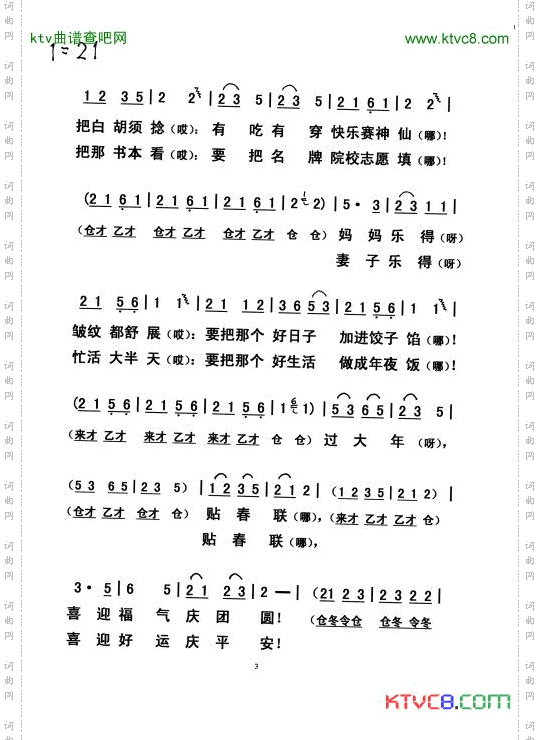 ktv曲谱查吧网 www.ktvc8.com
1=21
1 2 3 5 | 2 2 | 2 3 5 | 2 1 2 | 2 1 6 1 | 2 2 |
把白 胡须 捻(哎): 有 吃 有 穿 快乐赛神 仙(哪)!
把那 书本 看(哎): 要 把 名 牌 院校志愿 填(哪)!
(2 1 6 1 | 2 1 6 1 | 2 1 6 1 | 2 1 6 1 | 2 2) | 5· 3 | 2 3 1 1 |
(仓才 乙才 仓才 乙才 仓才 乙才 仓 仓) 妈 妈 乐 得(呀)
妻 子 乐 得(呀)
2 1 5 6 | 1 1 | 2 1 1 2 | 3 6 5 3 | 2 1 5 6 | 1 1 |
皱纹 都舒 展(哎): 要把那个 好日子 加进饺子 馅(哪)!
忙活 大半 天(哎): 要把那个 好生活 做成年夜 饭(哪)!
(2 1 5 6 | 2 1 5 6 | 2 1 5 6 | 2 1 5 6 | 1 1) | 5 3 6 5 | 2 3 5 |
(来才 乙才 来才 乙才 来才 乙才 仓 仓) 过 大 年(呀),
(5 3 6 5 | 2 3 5) | 1 2 3 5 | 2 1 2 | (1 2 3 5 | 2 1 2) |
(仓才 乙才 仓才 仓) 贴 春 联(哪), (来才 乙才 乙才 仓)
贴 春 联(哪),
3· 5 | 6 5 | 2 1 2 3 | 2 — | (21 2 3 | 2 3 2 2
喜 迎 福 气 庆 团 圆! (仓冬令仓 仓冬 令冬
喜 迎 好 运 庆 平 安!
3
KTVC8.COM
词曲网
词曲网
词曲网
词曲网
词曲网
词曲网
词曲网
词曲网
词曲网
词曲网
词曲网
词曲网